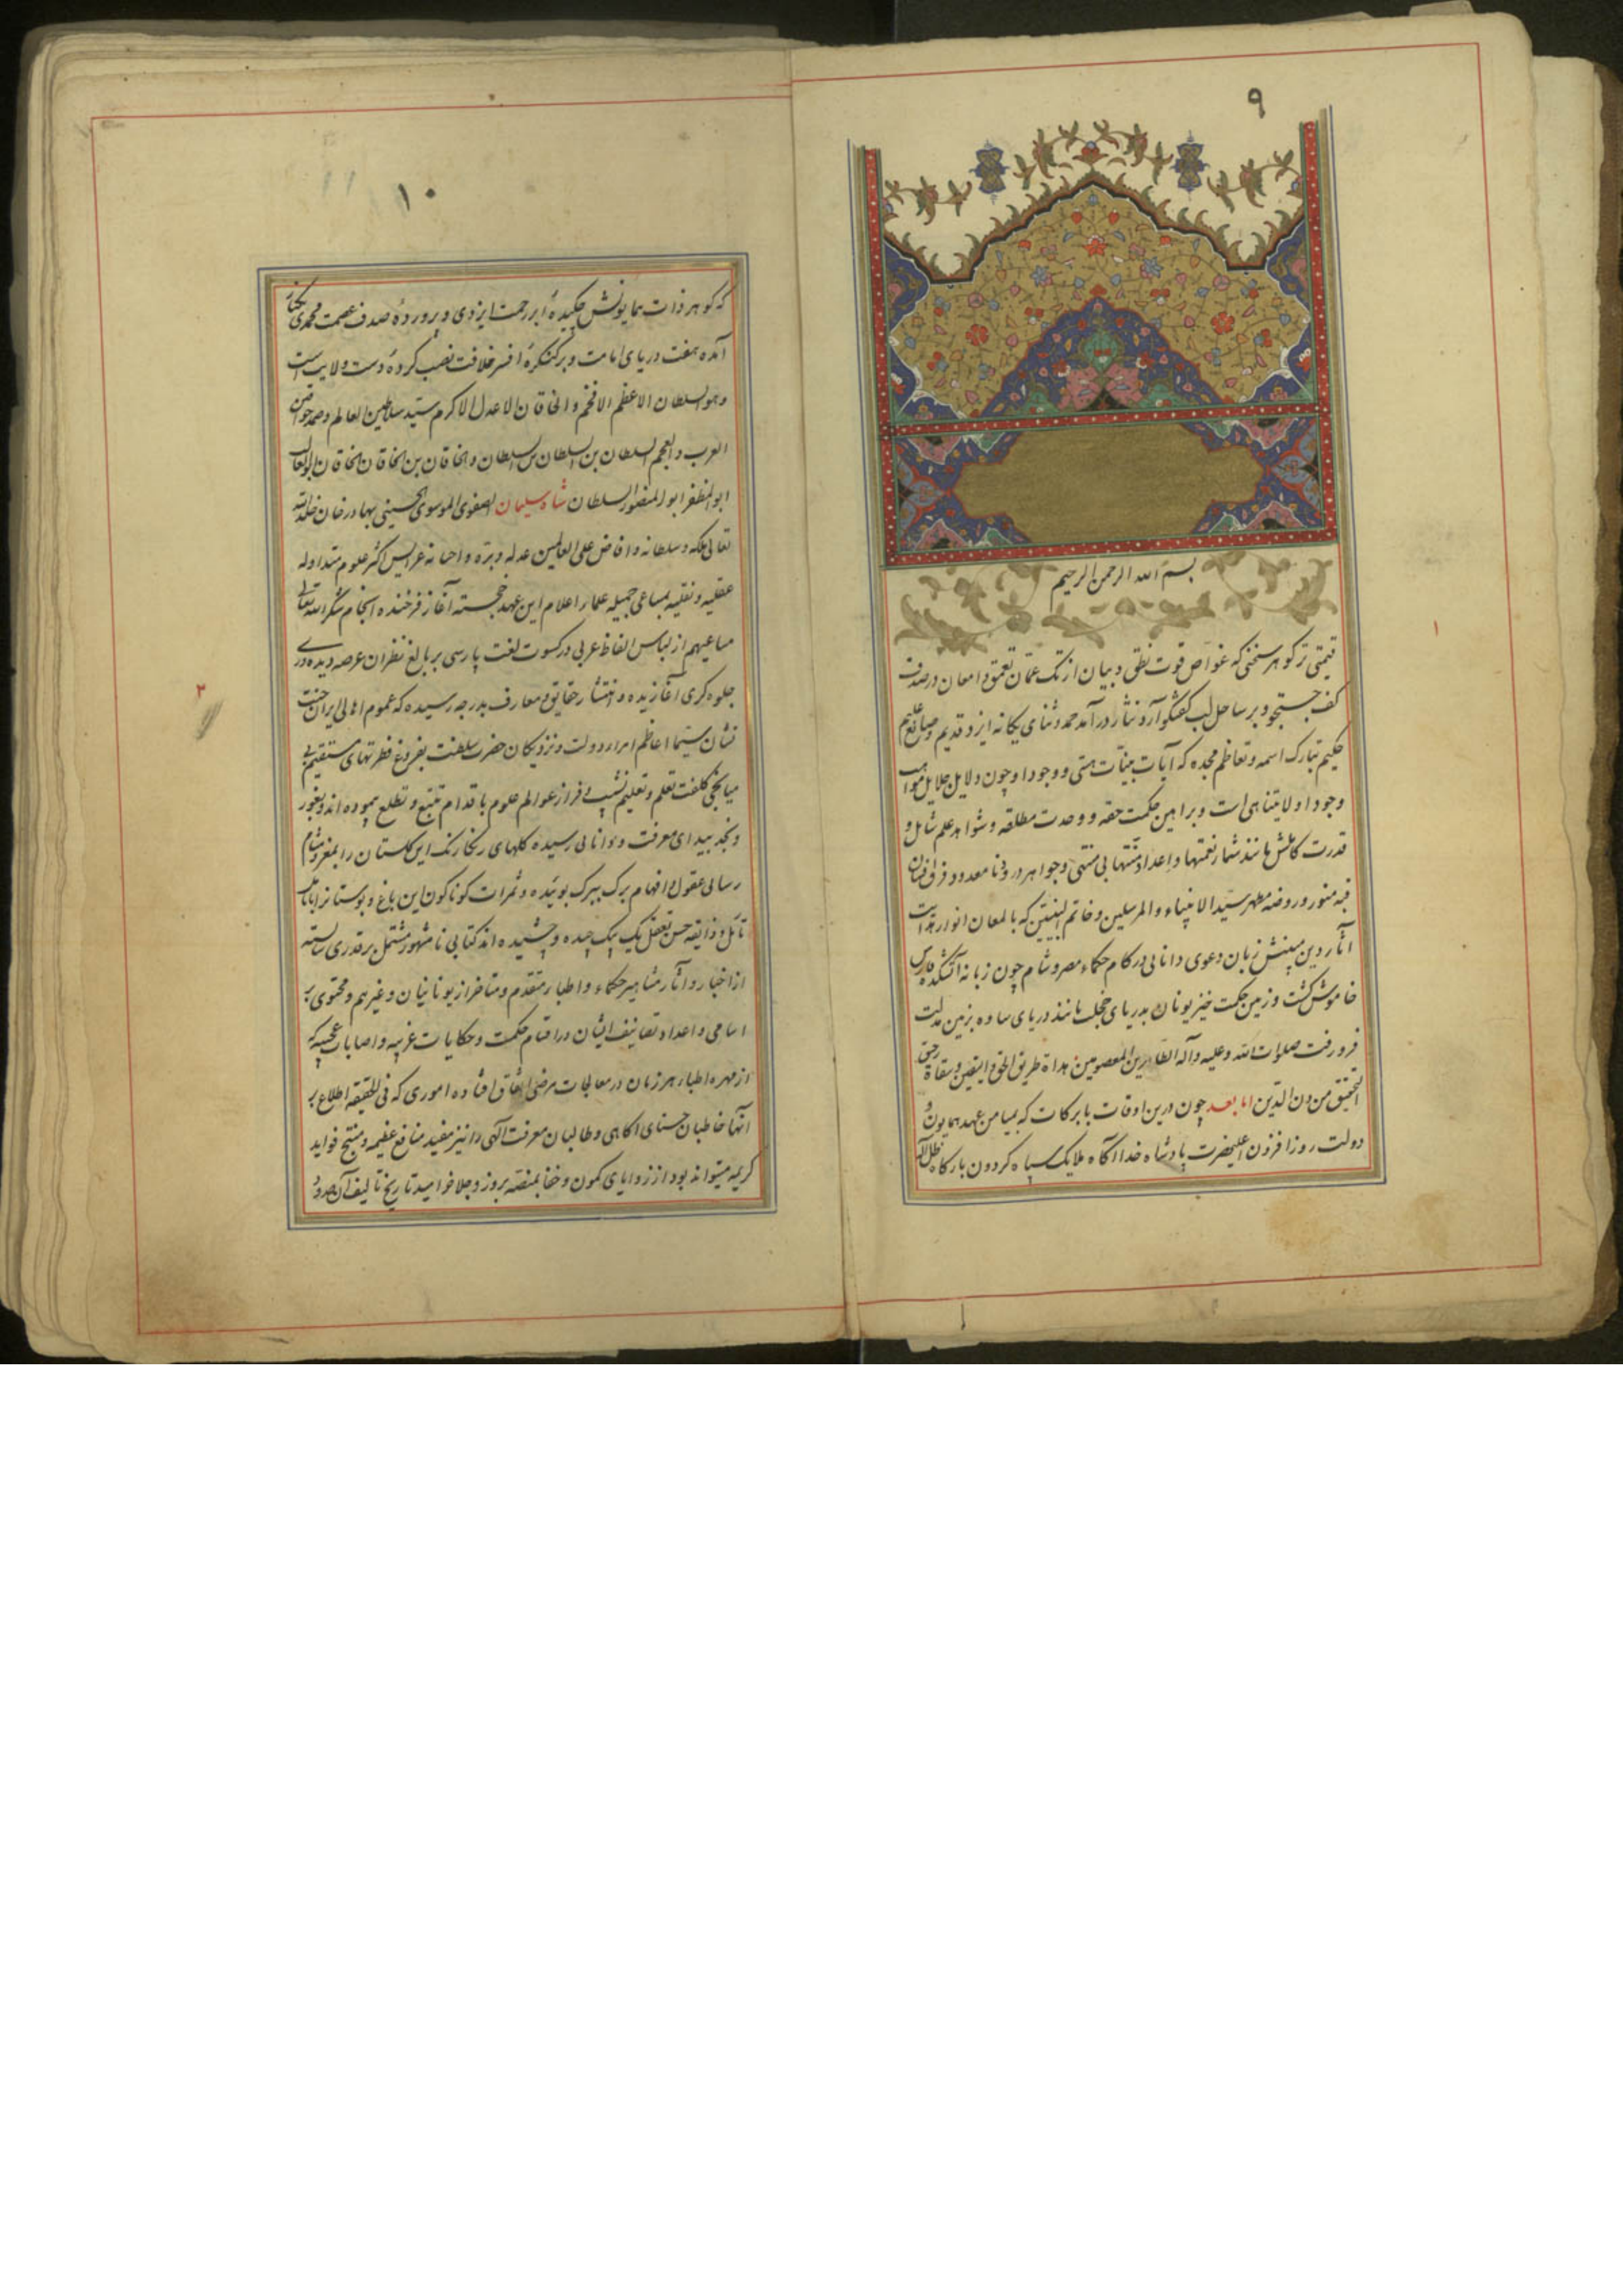 ۹
بسم الله الرحمن الرحیم
قیمتی ترکوهر سخنی که غواص قوت نطق و بیان از تک عمان تعمق و امعان در صدف
کف جستجو و بر ساحل لب کفتکو آرد نثار درآمد حمد و ثنای یکانه ایزد قدیم و صانع علیم
حکیم تبارک اسمه و تعاظم مجده که آیات بینات هستی و وجود او چون دلایل جلایل مواهب
وجود او لایتناهی است و براهین حکمت حقه و وحدت مطلقه و شواهد علم شامل و
قدرت کاملش مانند شمار نعمتها و اعداد منتها بی منتهی و جواهر درود نامعدود فرق
قبه منور و روضه مطهر سید الانبیاء و المرسلین و خاتم النبیین که بالمعان انوار هدایت
آثار دین مبینش زبان دعوی دانایی در کام حکماء مصر و شام چون زبانه آتشکده فارس
خاموش کشت و زمین حکمت خیز یونان بدریای خجلت مانند دریای ساوه بزمین مذلت
فرو رفت صلوات الله و علیه و آله الطاهرین المعصومین هداة طریق الحق و الیقین و سقاة رحیق
التحقیق من دن الدین اما بعد چون درین اوقات بابرکات که بمیامن عهد همایون و
دولت روز افزون اعلیحضرت پادشاه خدا آکاه ملایک سپاه کردون بارکاه ظل الله
۱
۱۰
که کوهر ذات همایونش چکیدهٔ ابر رحمت ایزدی و پروردهٔ صدف عصمت محمدی
آمده هفت دریای امامت و بر کنکرهٔ افسر خلافت نصب کردهٔ دست ولایت است
و هو السلطان الاعظم الافخم و الخاقان الاعدل الاکرم سید سلاطین العالم و
العرب و العجم السلطان بن السلطان بن السلطان و الخاقان بن الخاقان بن الخاقان
ابو المظفر ابو المنصور السلطان شاه سلیمان الصفوی الموسوی الحسینی بهادرخان خلد الله
تعالی ملکه و سلطانه و افاض علی العالمین عدله و بره و احسانه عرایس اکثر علوم متداوله
عقلیه و نقلیه بمساعی جمیله علماء اعلام این عهد خجسته آغاز فرخنده انجام شکر الله تعالی
مساعیهم از لباس الفاظ عربی در کسوت لغت پارسی بر بالغ نظران عرصه دیده وری
جلوه کری آغازیده و انتشار حقایق و معارف بدرجه رسیده که عموم اهالی ایران جنت
نشان سیما اعاظم امراء دولت و نزدیکان حضرت سلطنت بفروغ فطرتهای مستقیم بی
میانجی کلفت تعلم و تعلیم نشیب و فراز عوالم علوم باقدام تتبع و تطلع پیموده اند و بغور
و نجد بیدای معرفت و دانایی رسیده کلهای رنکارنک این کلستان را بمغز و مشام
رسای عقول و افهام برک ببرک بوئیده و ثمرات کوناکون این باغ و بوستانرا
تأمل و ذایقه حسن تعقل یک بیک چیده و چشیده اند کتابی نامشهور مشتمل بر قدری شایسته
از اخبار و آثار مشاهیر حکماء و اطباء متقدم و متأخر از یونانیان و غیرهم و محتوی بر
اسامی و اعداد تصانیف ایشان در اقسام حکمت و حکایات غریبه و اصابات عجیبه که
از مهره اطباء هر زمان در معالجات مرضی اتفاق افتاده اموری که فی الحقیقه اطلاع بر
آنها خاطبان حسنای اکاهی و طالبان معرفت الهی را نیز مفید منافع عظیمه و منتج فواید
کریمه میتواند بود از زوایای کمون و خفا بمنصه بروز و جلا خرامید تاریخ تالیف آن
۲